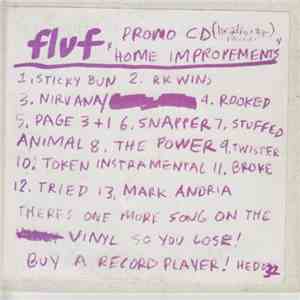 fluf, PROMO CD
HOME IMPROPEMENTS
1, STICKY BUN 2. RK WINS
3. NIRVANA/ 4. ROOKED
5, PAGE 3+1 6. SNAPPER 7, STUFFED
ANIMAL 8. THE POWER 9, TWISTER
10, TOKEN INSTRAMENTAL 11, BROKE
12. TRIED 13. MARK ANDRIA
THERES ONE MORE SONG ON THE
VINYL SO YOU LOSE!
BUY A RECORD PLAYER!